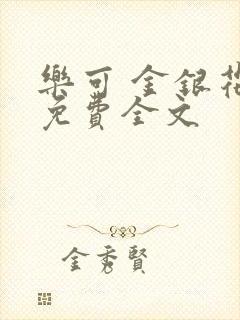 樂可 金銀花
免費全文
金秀賢